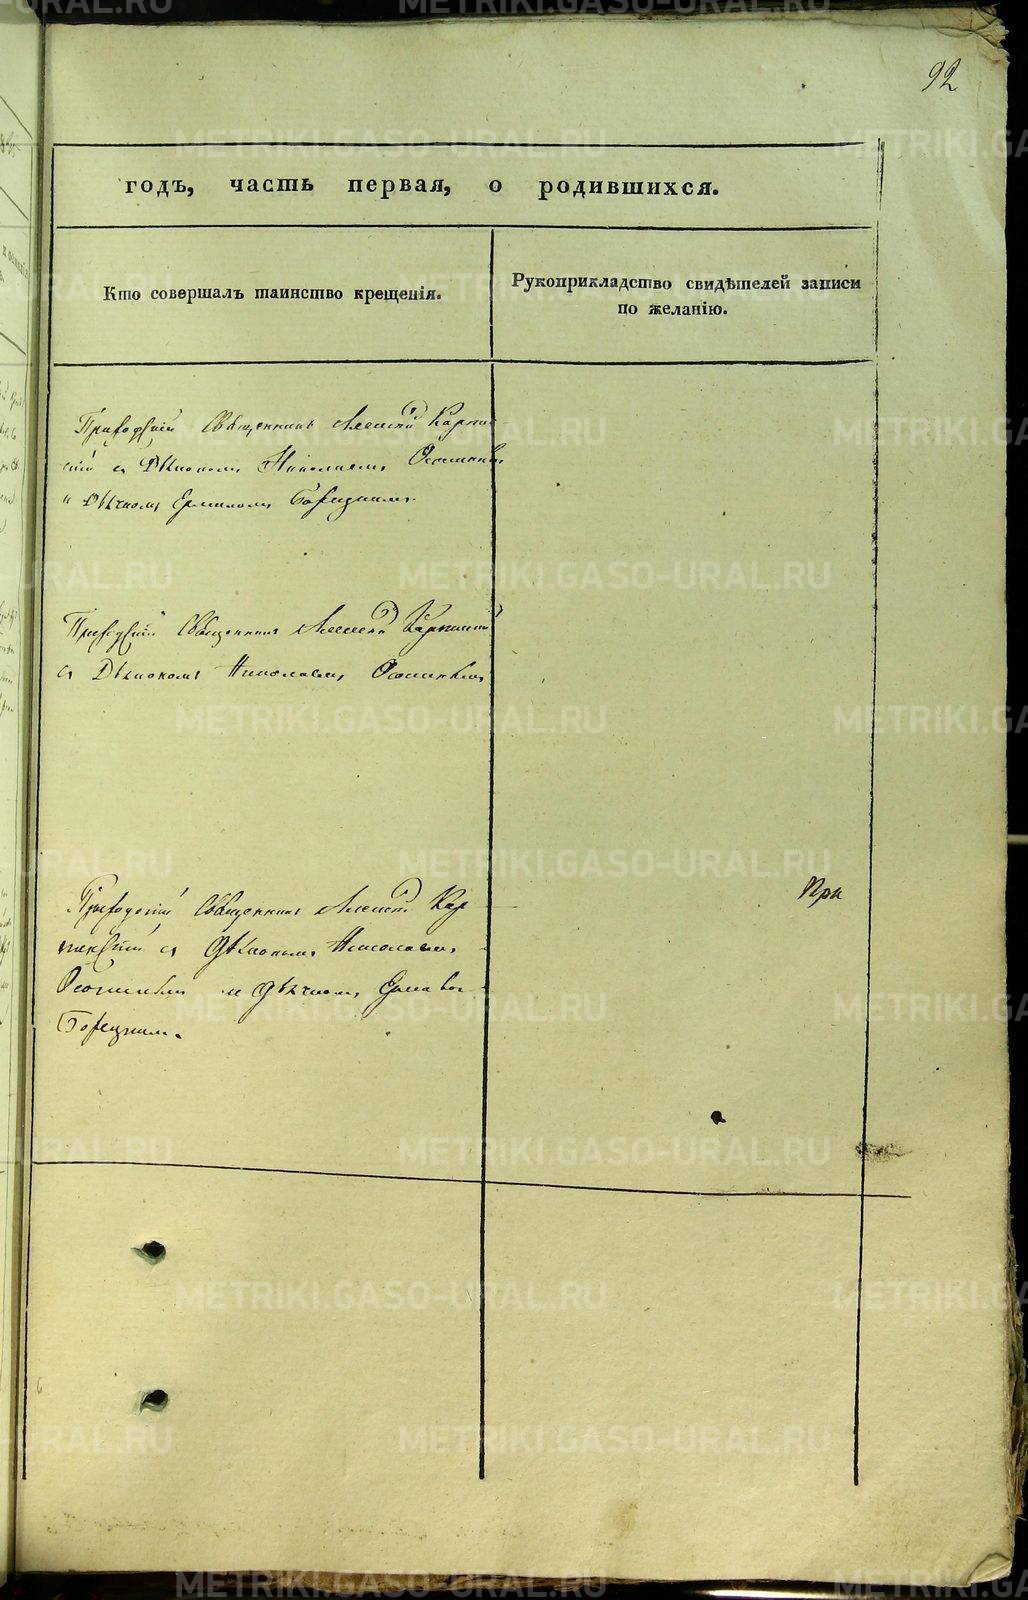 92
годъ, часть первая, о родившихся.
Кто совершалъ таинство крещенія.
Рукоприкладство свидѣтелей записи
по желанію.
Приходскій Священникъ Алексѣй Карпин
скій съ Діакономъ Николаемъ
и Дьячкомъ Борецкимъ.
Приходскій Священникъ Алексѣй Карпинскій
съ Діакономъ Николаемъ
Приходскій Священникъ Алексѣй Кар
пинскій съ Діакономъ Николаемъ
и Дьячкомъ
Борецкимъ.
При
METRIKI.GASO-URAL.RU